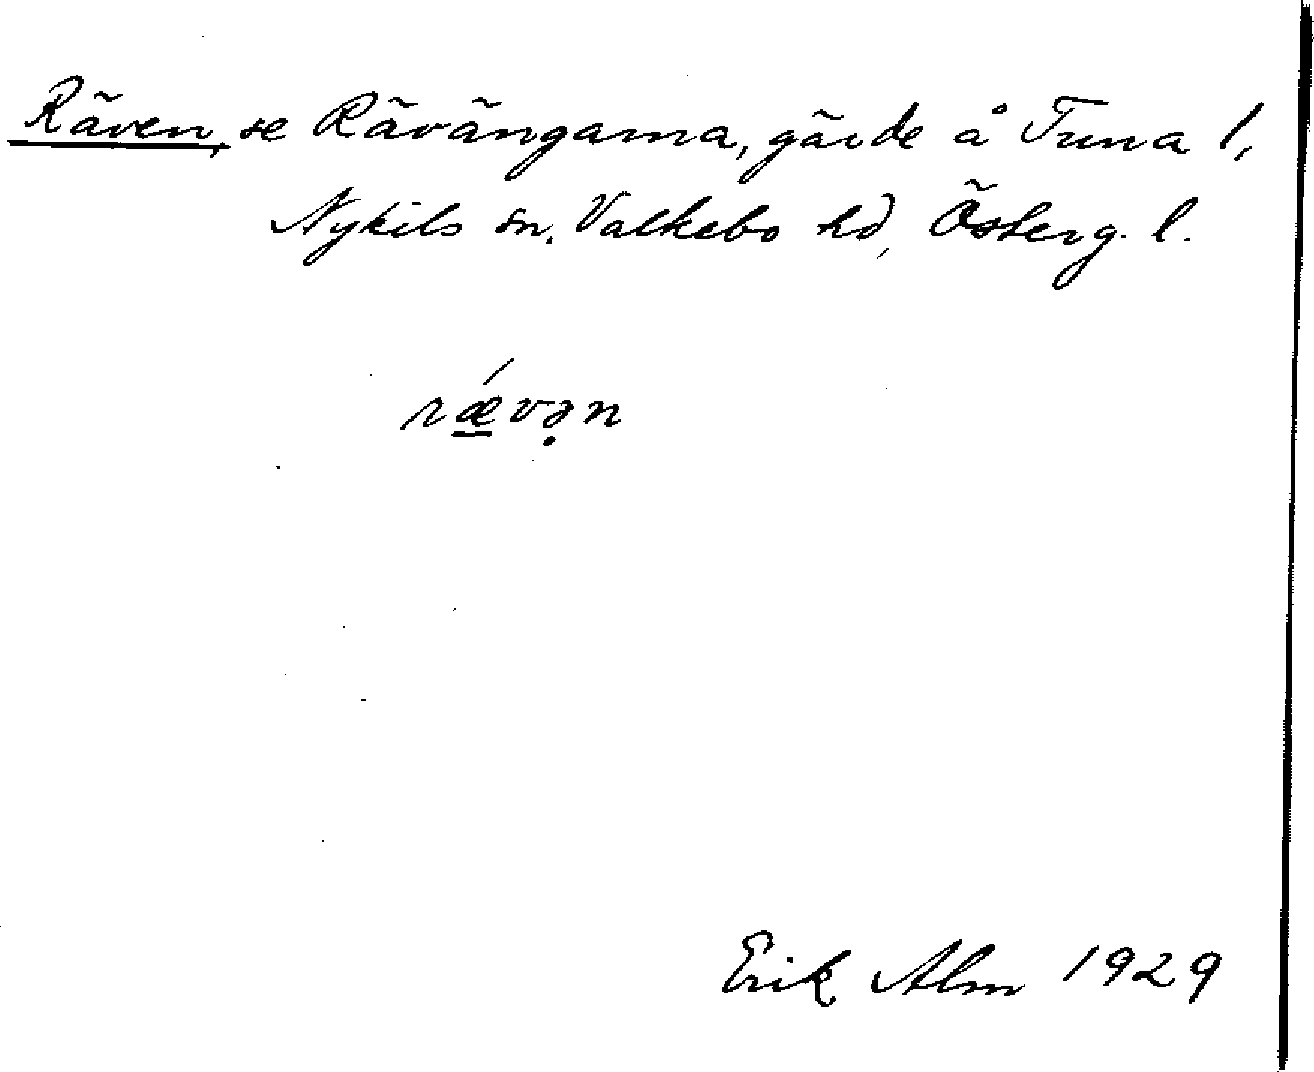 Räven, se Rävängarna, gärde å Tuna 1,
Nykils sn. Valkebo hd, Österg. l.
rǽ̱və̣n
Erik Alm 1929